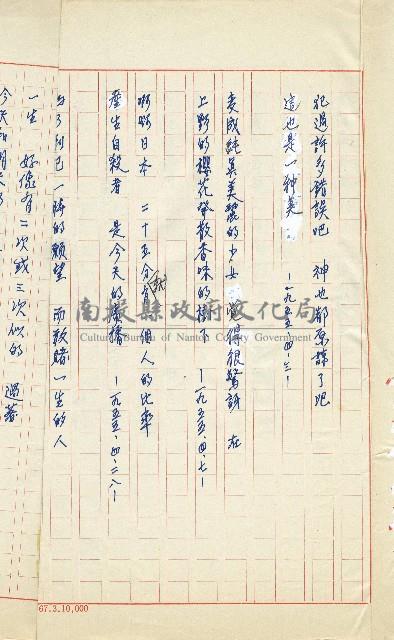 犯過許多錯誤吧 神也都原諒了吧
這也是一种美
—一九五五、四、三—
變成純真美麗的少女 覺得很驚訝 在
上野的櫻花發散香味的樹下 —一九五五、四、七—
啊啊日本 二十五分有(就)一個人的比率
產生自殺者 是今天的廣播 —一九五五、四、二八—
為了剎已一勝的願望 而歌賭一生的人
一生 好像有二次或三次似的 過著
今天和明天
南投縣政府文化局
Cultural Bureau of Nantou County Government
67.3.10,000